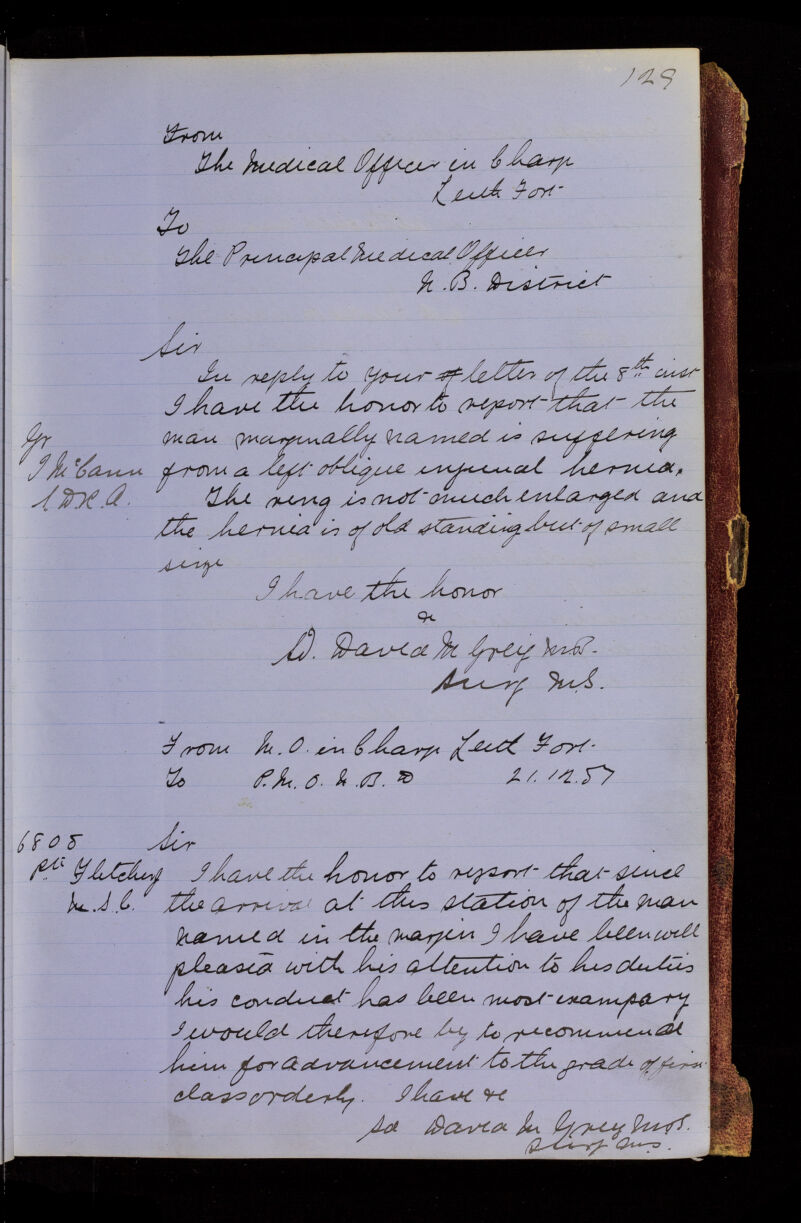 129
From
The Medical Officer in Charg
Leith Fort
To
The Principal Medical Officer
N. B. District
Sir
In reply to your letter of the 8th inst
I have the honor to report that the
Gr
man marginally named is suffering
J McCann
from a left oblique inguinal hernia.
1 D R. A.
The ring is not much enlarged and
the hernia is of old standing but of small
size
I have the honor
&
Sd. David M Greig M.B.
Surg M.S.
From M. O. in Charg Leith Fort.
To P. M. O. N. B. D 21.12.87
6808
Sir
Pte Fletcher
I have the honor to report that since
M. S. C.
the arrival at this station of the man
named in the margin I have been well
pleased with his attention to his duties
his conduct has been most exampary
I would therefore beg to recommend
him for advancement to the grade of first
class orderly. I have &c
Sd David M Greig M.B.
Surg M.S.